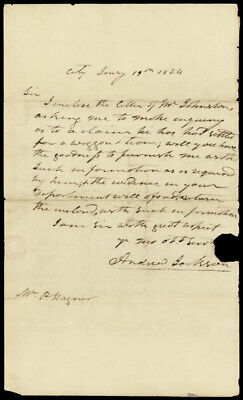 City Jany 19th 1824
Sir
I enclose the letter of Mr Johnston,
asking me to make inquiry
as to a claim he has had settled
for a waggon & team; will you have
the goodness to furnish me with
such information as required
by him, the evidence in your
Department will afford, & return
the inclosed, with such information
I am Sir with great respect
yr mo obt Servt
Andrew Jackson
Mr P. Hagner